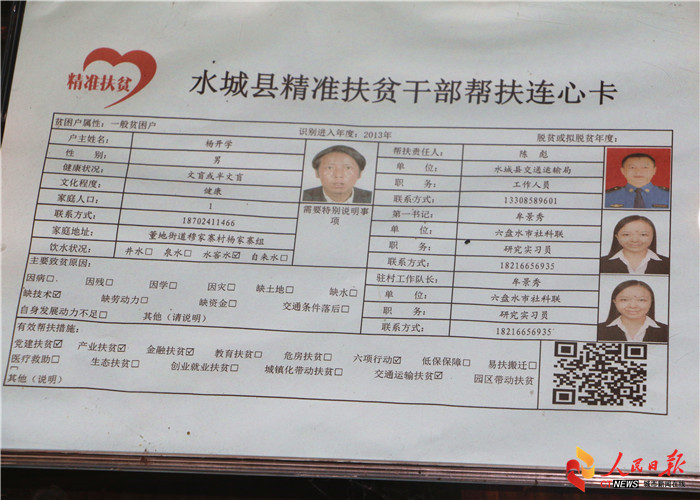 精准扶贫
水城县精准扶贫干部帮扶连心卡
贫困户属性：一般贫困户 识别进入年度：2013年 脱贫或拟脱贫年度：
户主姓名： 杨开学
性 别： 男
健康状况： 文盲或半文盲
文化程度： 健康
家庭人口： 1
联系方式： 18702411466
家庭地址： 董地街道穆家寨村杨家寨组
饮水状况： 井水□ 泉水□ 水窖水☑ 自来水□
需要特别说明事
项
帮扶责任人： 陈彪
单 位： 水城县交通运输局
职 务： 工作人员
联系方式： 13308589601
第一书记： 牟景秀
单 位： 六盘水市社科联
职 务： 研究实习员
联系方式： 18216656935
驻村工作队长： 牟景秀
单 位： 六盘水市社科联
职 务： 研究实习员
联系方式： 18216656935
主要致贫原因：
因病□ 因残□ 因学□ 因灾□ 缺土地□ 缺水□
缺技术☑ 缺劳动力□ 缺资金□ 交通条件落后□
自身发展动力不足□ 其他（请说明）
有效帮扶措施：
党建扶贫☑ 产业扶贫☑ 金融扶贫☑ 教育扶贫□ 危房扶贫□ 六项行动☑ 低保保障□ 易扶搬迁□
医疗救助□ 生态扶贫□ 创业就业扶贫□ 城镇化带动扶贫□ 交通运输扶贫☑ 园区带动扶贫
□
其他（说明）
人民日报
NEWS